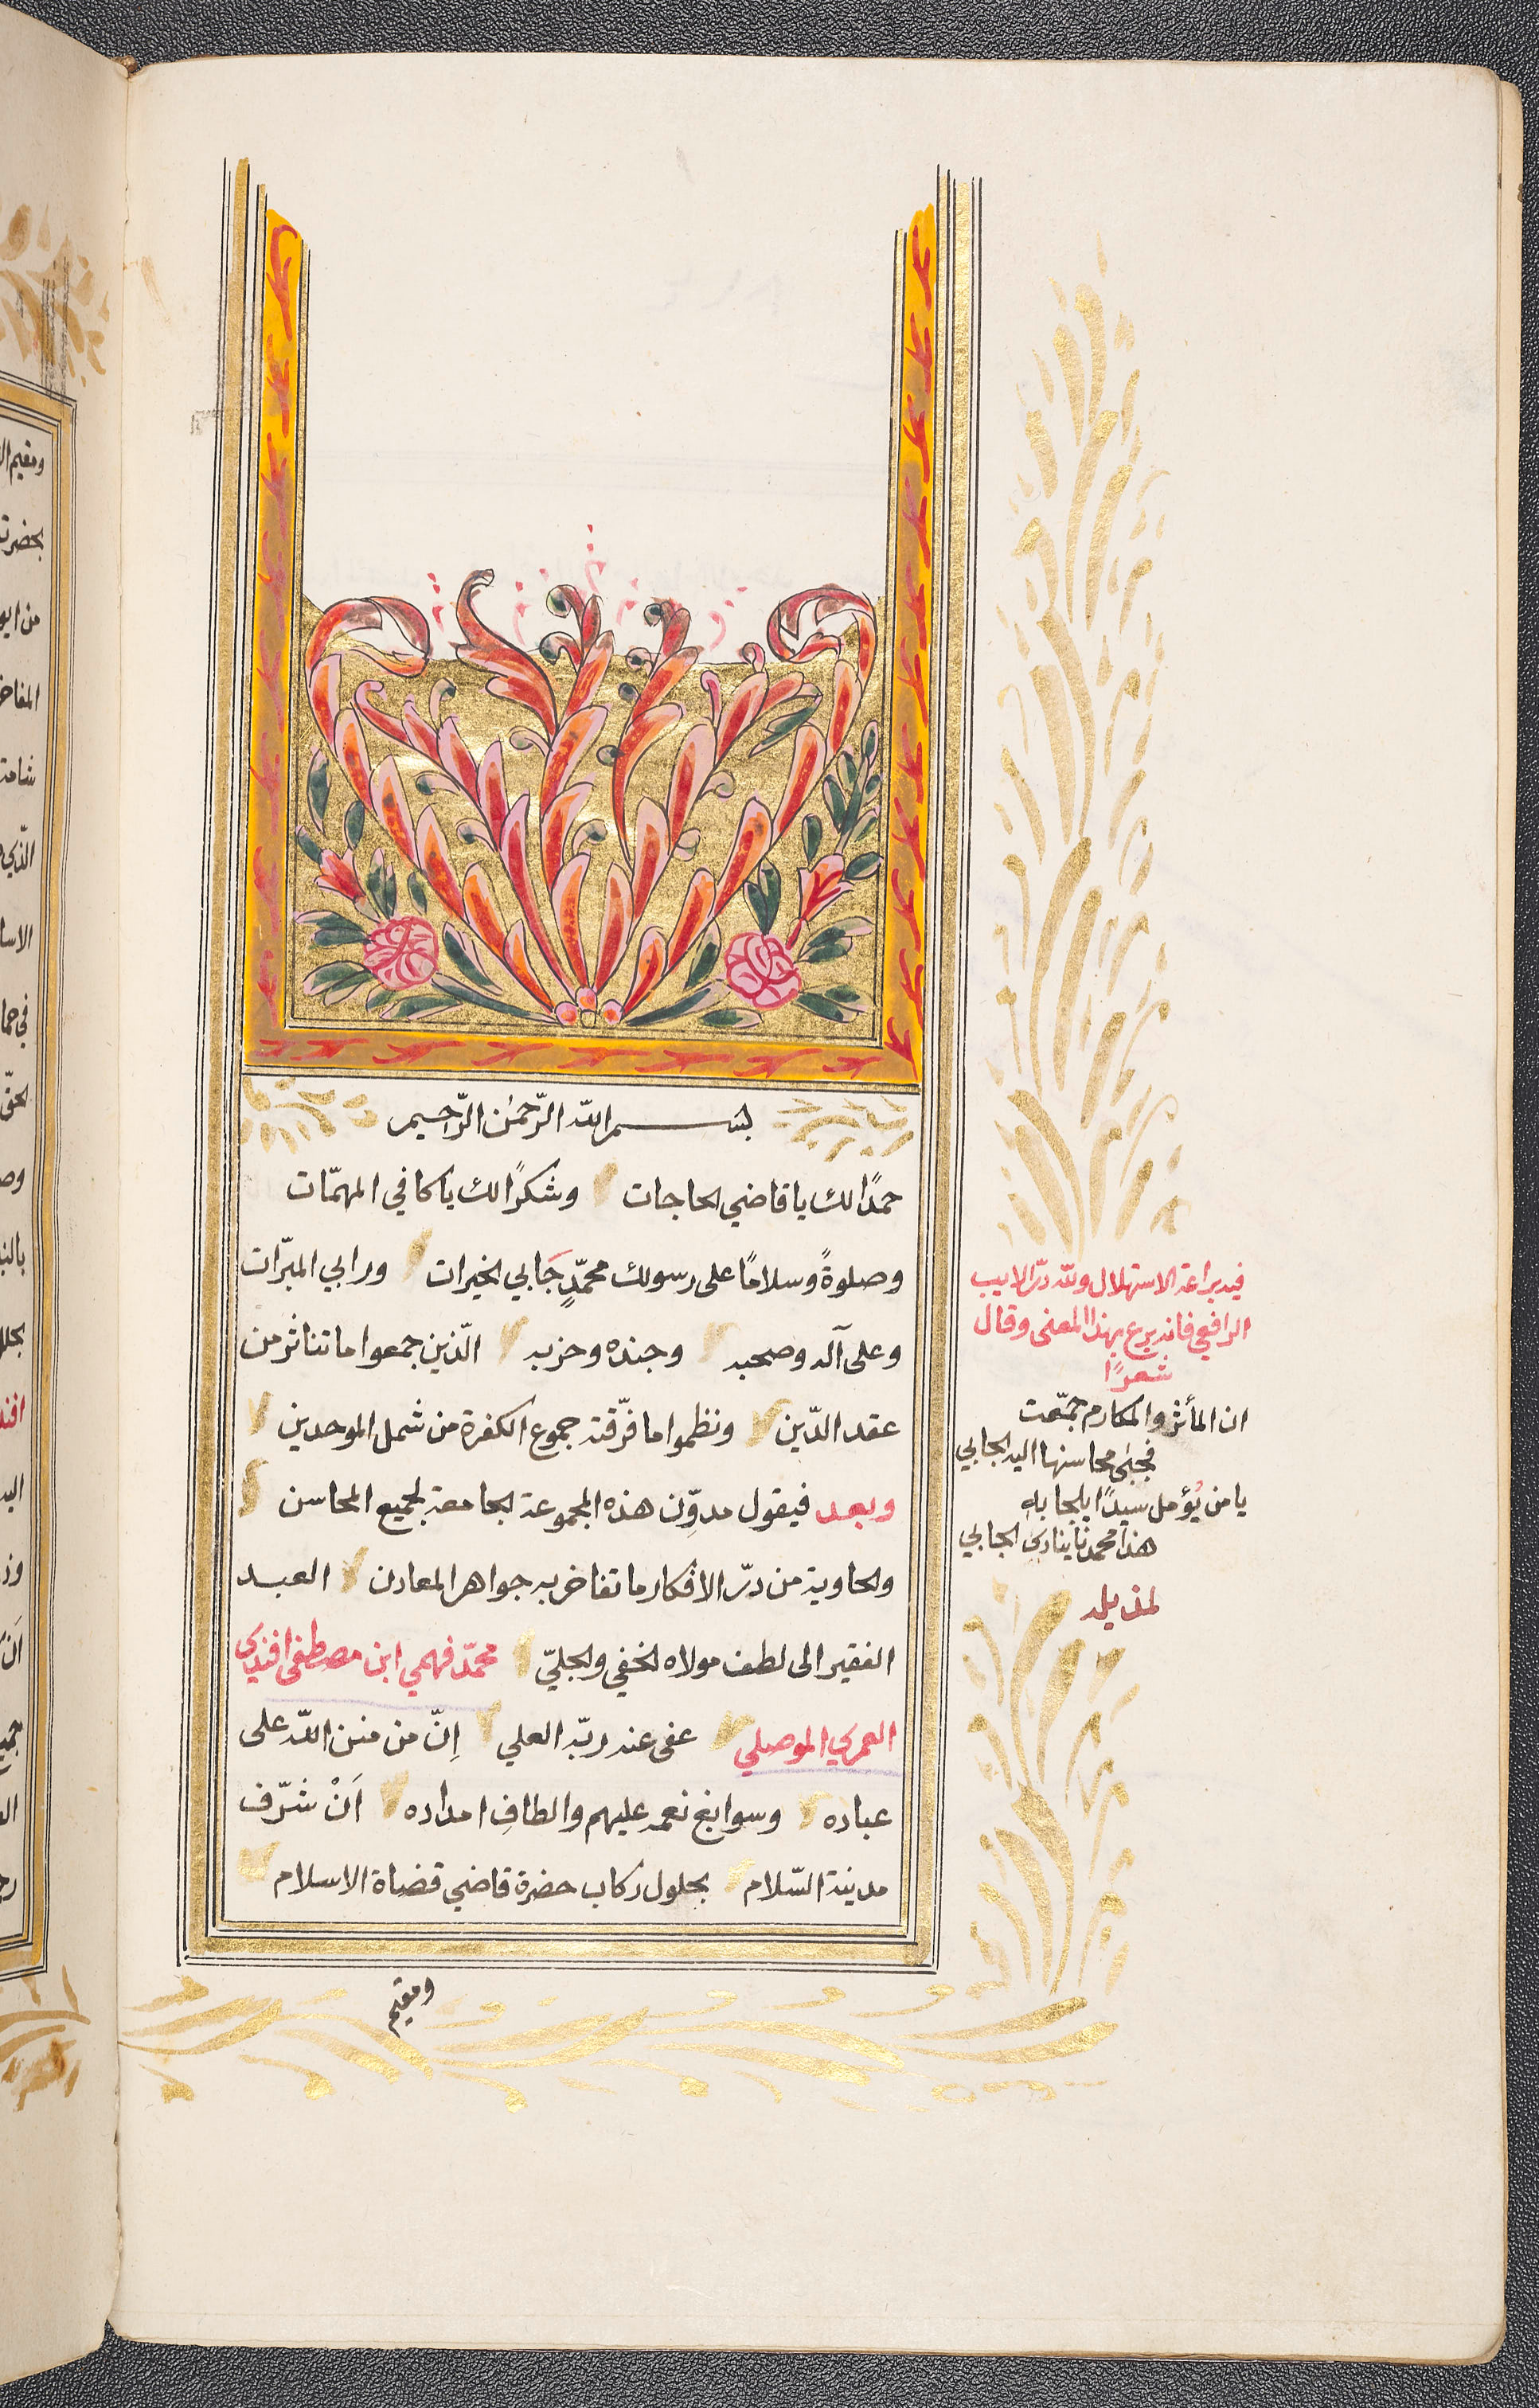 بســـم الله الرّحمٰن الرّحيم
حمدًا لك يا قاضي الحاجات وشكرًا لك يا كافي المهمّات
وصلوةً وسلامًا على رسولك محمّدٍ جَابي الخيرات ورابي المبرّات
وعلى آله وصحبه وجنده وحزبه الّذين جمعوا ما تناثر من
عقد الدّين ونظموا ما فرّقته جموع الكفرة من شمل الموحدين
وبعد فيقول مدوّن هذه المجموعة الجامعة لجميع المحاسن
والحاوية من درّ الافكار ما تفاخر به جواهر المعادن العبد
الفقير الى لطف مولاه الخفي والجليّ محمّد فهمي ابن مصطفى افندي
العمري الموصلي عفى عنه ربّه العلي اِنّ من منن اللّه على
عباده وسوابغ نعمه عليهم والطافِ امداده اَنْ شرّف
مدينة السّلام بحلول ركاب حضرة قاضي قضاة الاسلام
ومقيم
فيه براعة الاستهلال ولله درّ الاديب
الرافعي فانه برع بهذا المعنى وقال
شعرًا
ان المأثر والمكارم جمّعت
فجبى محاسنها اليه الجابي
يا من يُؤمل سيدًا يلجا به
هذا محمدنا ينادى الجابي
لمذيله
ومقيم
بحضرت
الّذي
بالن
افند
اليه